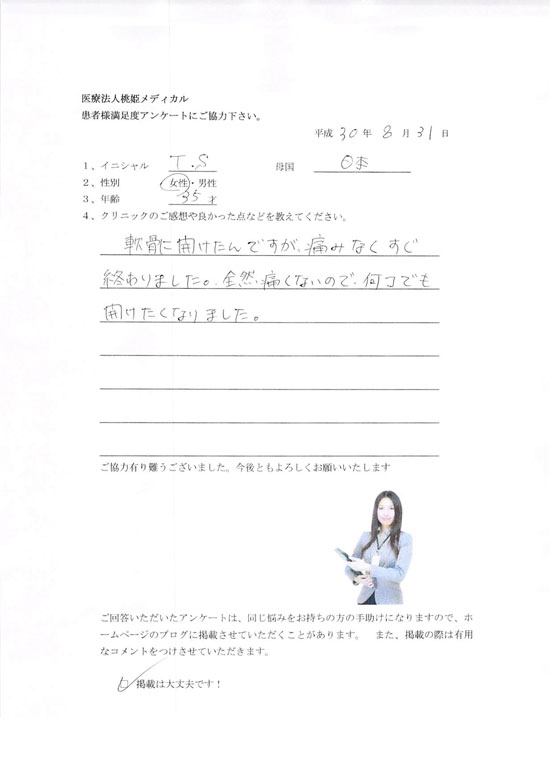 医療法人桃姫メディカル
患者様満足度アンケートにご協力下さい。
平成 30 年 8 月 31 日
1、イニシャル T.S 母国 日本
2、性別 女性・男性
3、年齢 35 才
4、クリニックのご感想や良かった点などを教えてください。
軟骨に開けたんですが、痛みなくすぐ
終わりました。全然痛くないので、何コでも
開けたくなりました。
ご協力有り難うございました。今後ともよろしくお願いいたします
ご回答いただいたアンケートは、同じ悩みをお持ちの方の手助けになりますので、ホ
ームページのブログに掲載させていただくことがあります。 また、掲載の際は有用
なコメントをつけさせていただきます。
☑ 掲載は大丈夫です！